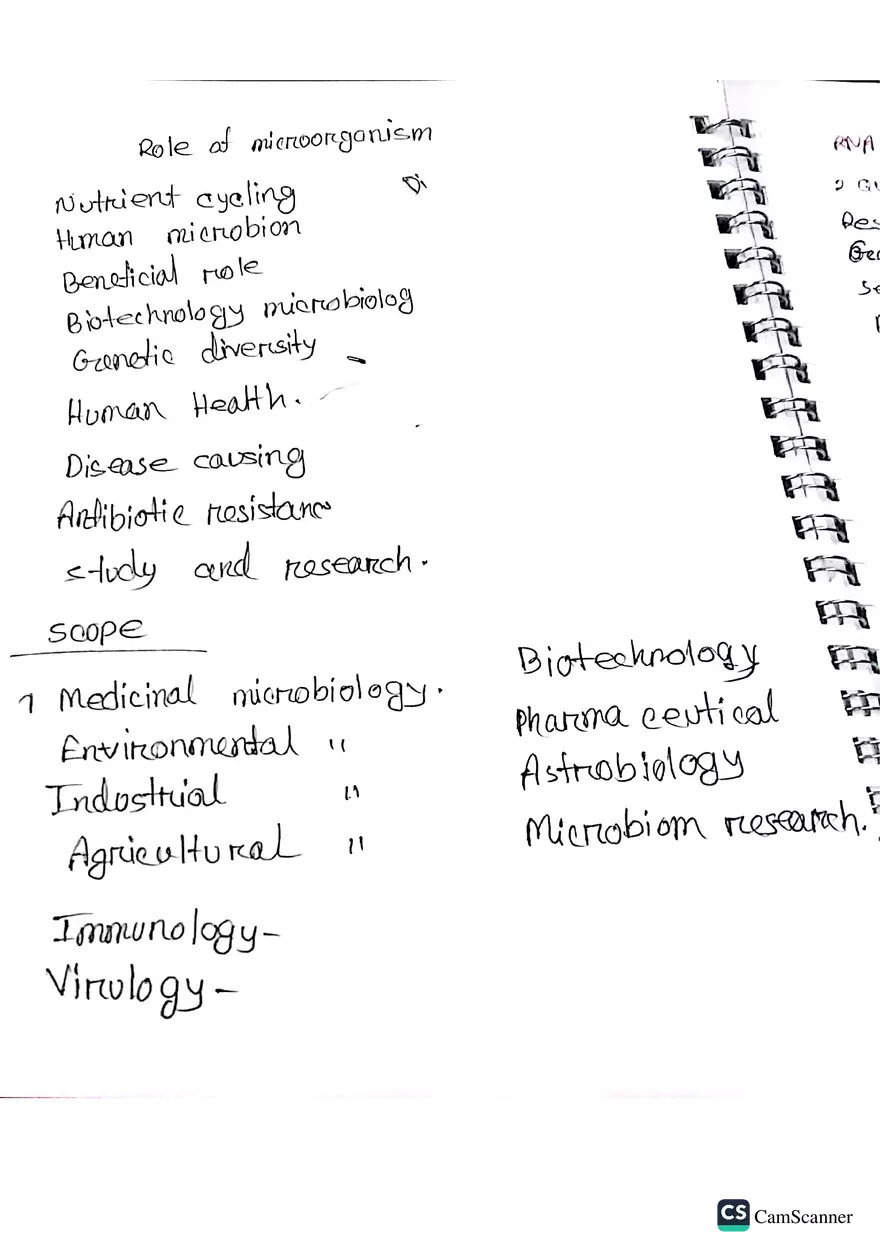 Role of microorganism
Nutrient cycling
Di
Human microbion
Beneficial role
Biotechnology microbiolog
Genetic diversity
Human Health.
Disease causing
Antibiotic resistanc
study and research.
Scope
1 Medicinal microbiology.
Environmental "
Indostrial "
Agricultural "
Immunology -
Virology -
Biotechnology
Pharma ceutical
Astrobiology
Microbiom research.
RNA
Des
Gen
Se
CS CamScanner